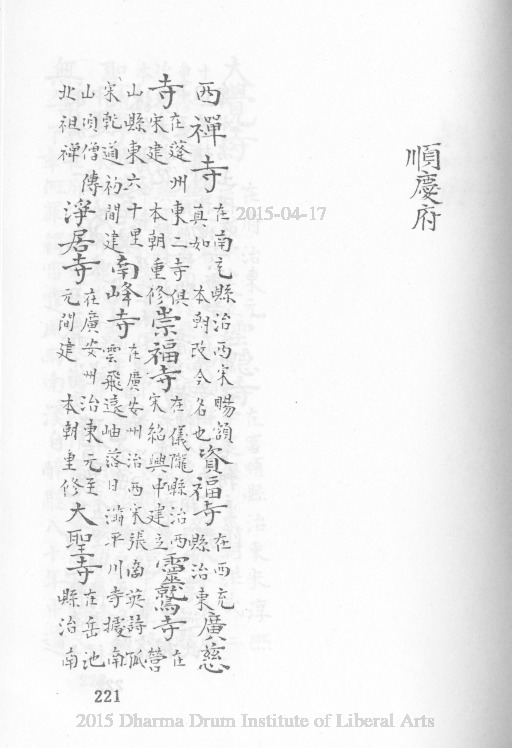 順慶府
西禪寺在南充縣治西宋賜額真如本朝改今名也資福寺在西充縣治東廣慈
寺在蓬州東二寺俱宋建本朝重修崇福寺在儀隴縣治西宋紹興中建立靈鷲寺在營
山縣東六十里宋乾道初間建南峰寺在廣安州治西宋張商英詩孤雲飛遠岫落日滿平川寺據南
山頂僧傳北祖禪淨居寺在廣安州治東元至元間建本朝重修大聖寺在岳池縣治南
221
2015-04-17
2015 Dharma Drum Institute of Liberal Arts